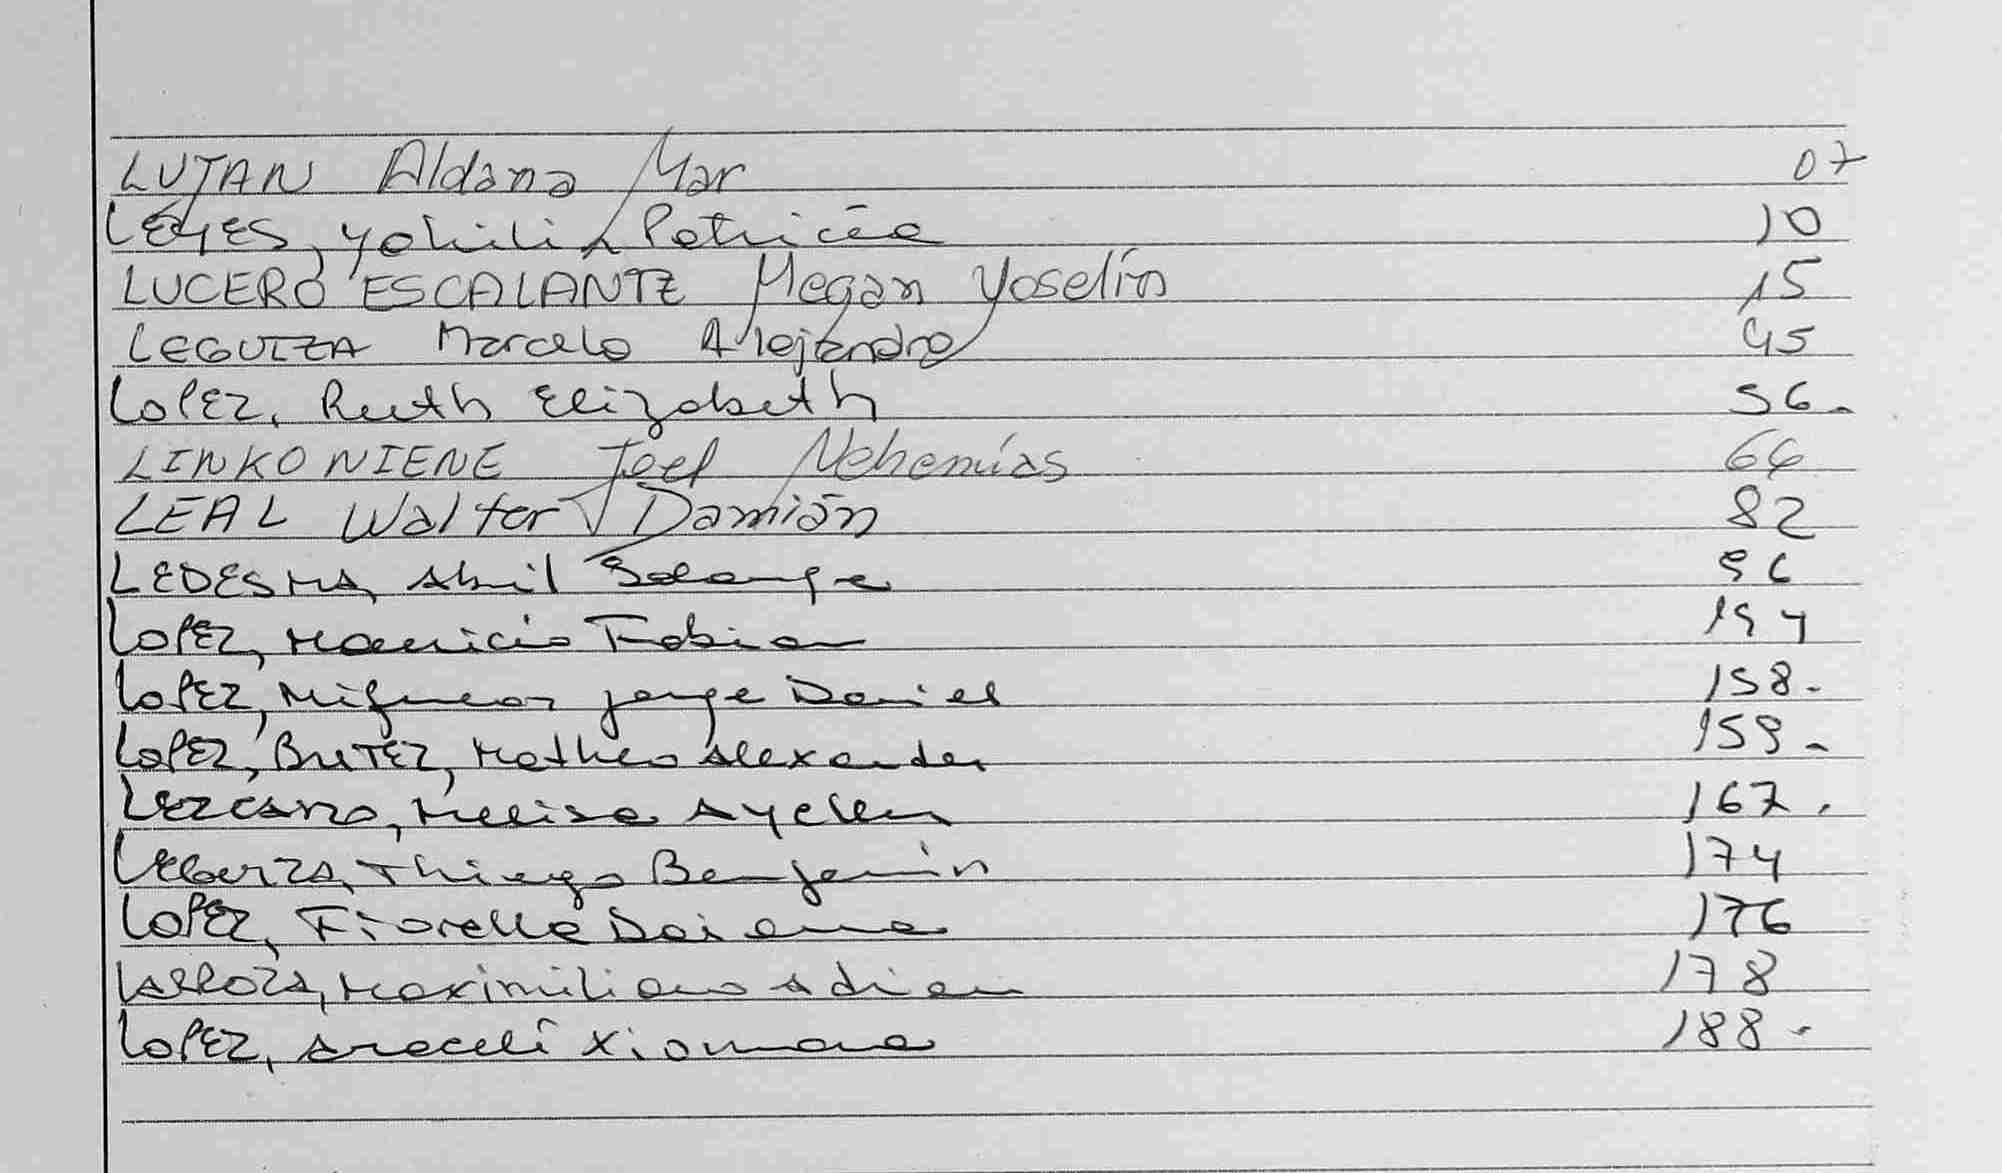 LUJAN Aldana Mar 07
LEYES, Yohili Patricia 10
LUCERO ESCALANTE Megan Yoselín 15
LEGUIZA Marcelo Alejandro 45
LOPEZ, Ruth Elizabeth 56.
LINKONIENE Joel Nehemías 66
LEAL Walter Damián 82
LEDESMA, Abril Solange 96
LOPEZ, Mauricio Fabian
LOPEZ, Jorge Daniel 158.
LOPEZ, Matheo Alexander 159.
LEZCANO, Melisa Ayelen 167.
Thiago Benjamín 174
LOPEZ, Fiorella Daiana 176
Maximiliano Adrian 178
LOPEZ, Araceli Xiomara 188.